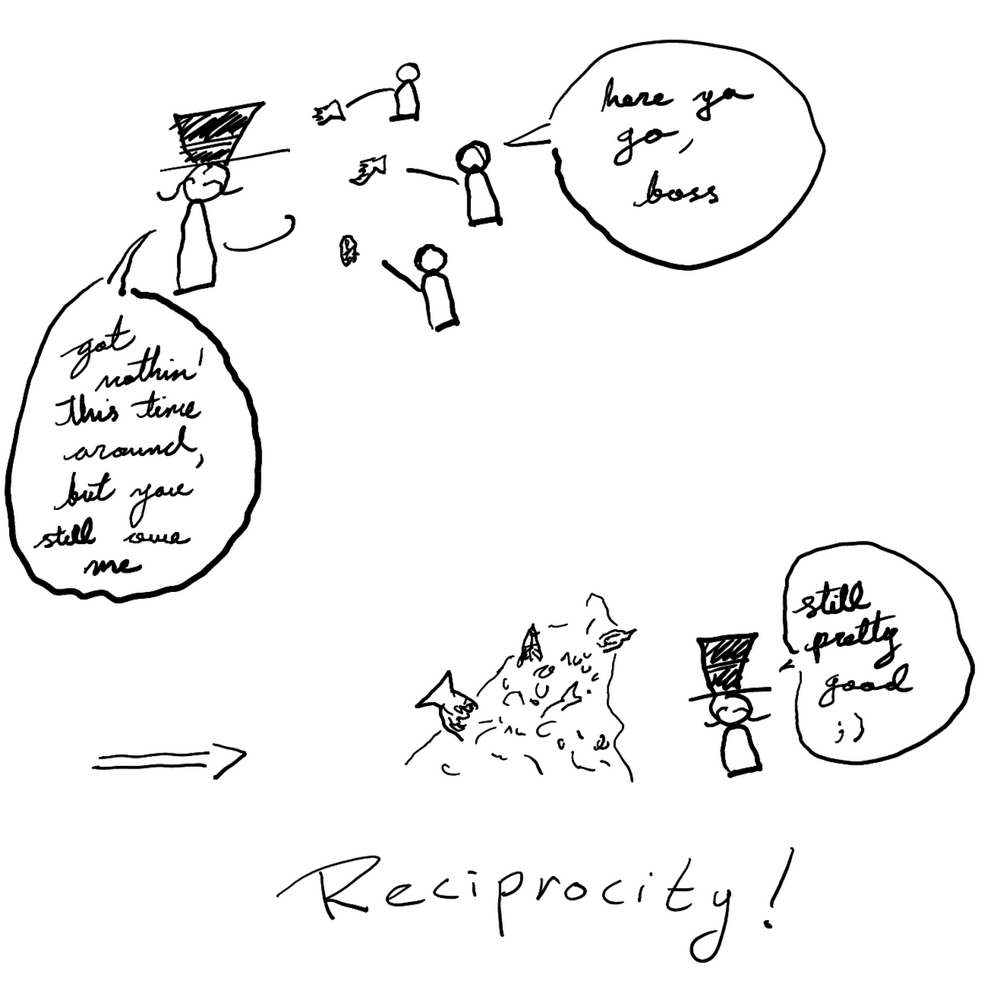 here ya
go,
boss
got
nothin'
this time
around,
but you
still owe
me
still
pretty
good
;)
Reciprocity!